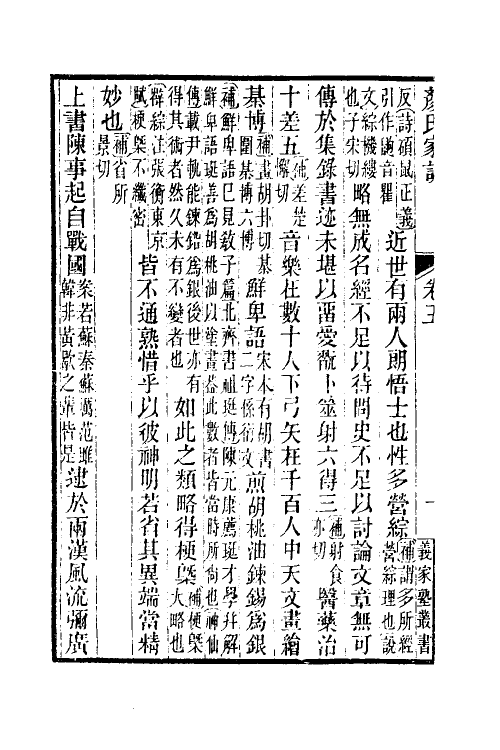 顏氏家訓 卷五 一 義家塾叢書
反詩碩鼠正義引作鼫音瞿 近世有兩人朗悟士也性多營綜 補謂多所經營綜理也說
文綜機縷也子宋切 略無成名經不足以待問史不足以討論文章無可
傳於集錄書迹未堪以畱愛翫卜筮射六得三 補射食亦切 醫藥治
十差五 補差楚懈切 音樂在數十人下弓矢在千百人中天文畫繪
棊博 補畫胡卦切棊圍棊博六博 鮮卑語 宋本有胡書二字係衍文 煎胡桃油鍊錫爲銀
補鮮卑語已見敎子篇北齊書祖珽傳陳元康薦珽才學幷解鮮卑語珽善爲胡桃油以塗畫葢此數者皆當時所尙也神仙
傳載尹軌能鍊鉛爲銀後世亦有得其術者然久未有不變者也 如此之類略得梗㮣 補梗㮣大略也
綜注張衡東京賦梗㮣不纖密 皆不通熟惜乎以彼神明若省其異端當精
妙也 補省所景切
上書陳事起自戰國 案若蘇秦蘇厲范雎韓非黃歇之輩皆是 逮於兩漢風流彌廣